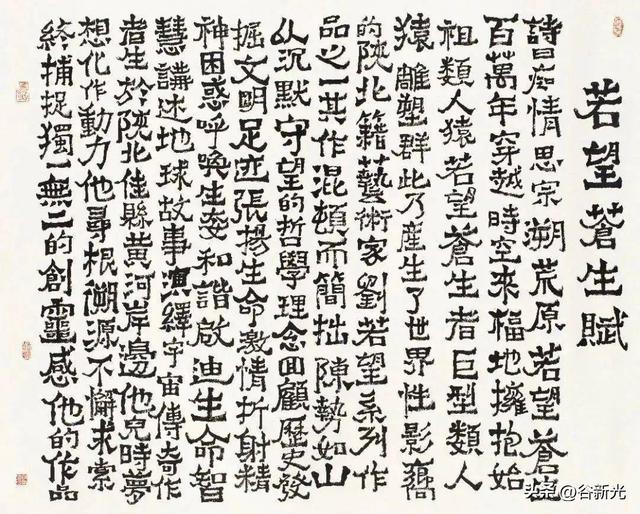 若望蒼生賦
詩曰痴情思宗溯荒原若望蒼生
百萬年穿越時空來福地擁抱始
祖類人猿若望蒼生者巨型類人
猿雕塑群此乃産生了世界性影響
的陝北籍藝術家劉若望系列作
品之一其作混頓而簡拙陳勢如山
从沉默守望的哲學理念回顧歷史發
掘文明足迹張揚生命激情折射精
神困惑呼喚生姿和諧啟迪生命智
慧講述地球故事演繹宇宙傳奇作
者生於陝北佳縣黄河岸邊他兒時夢
想化作動力他尋根溯源不懈求索
終捕捉獨一無二的創靈感他的作品
头条@谷新光